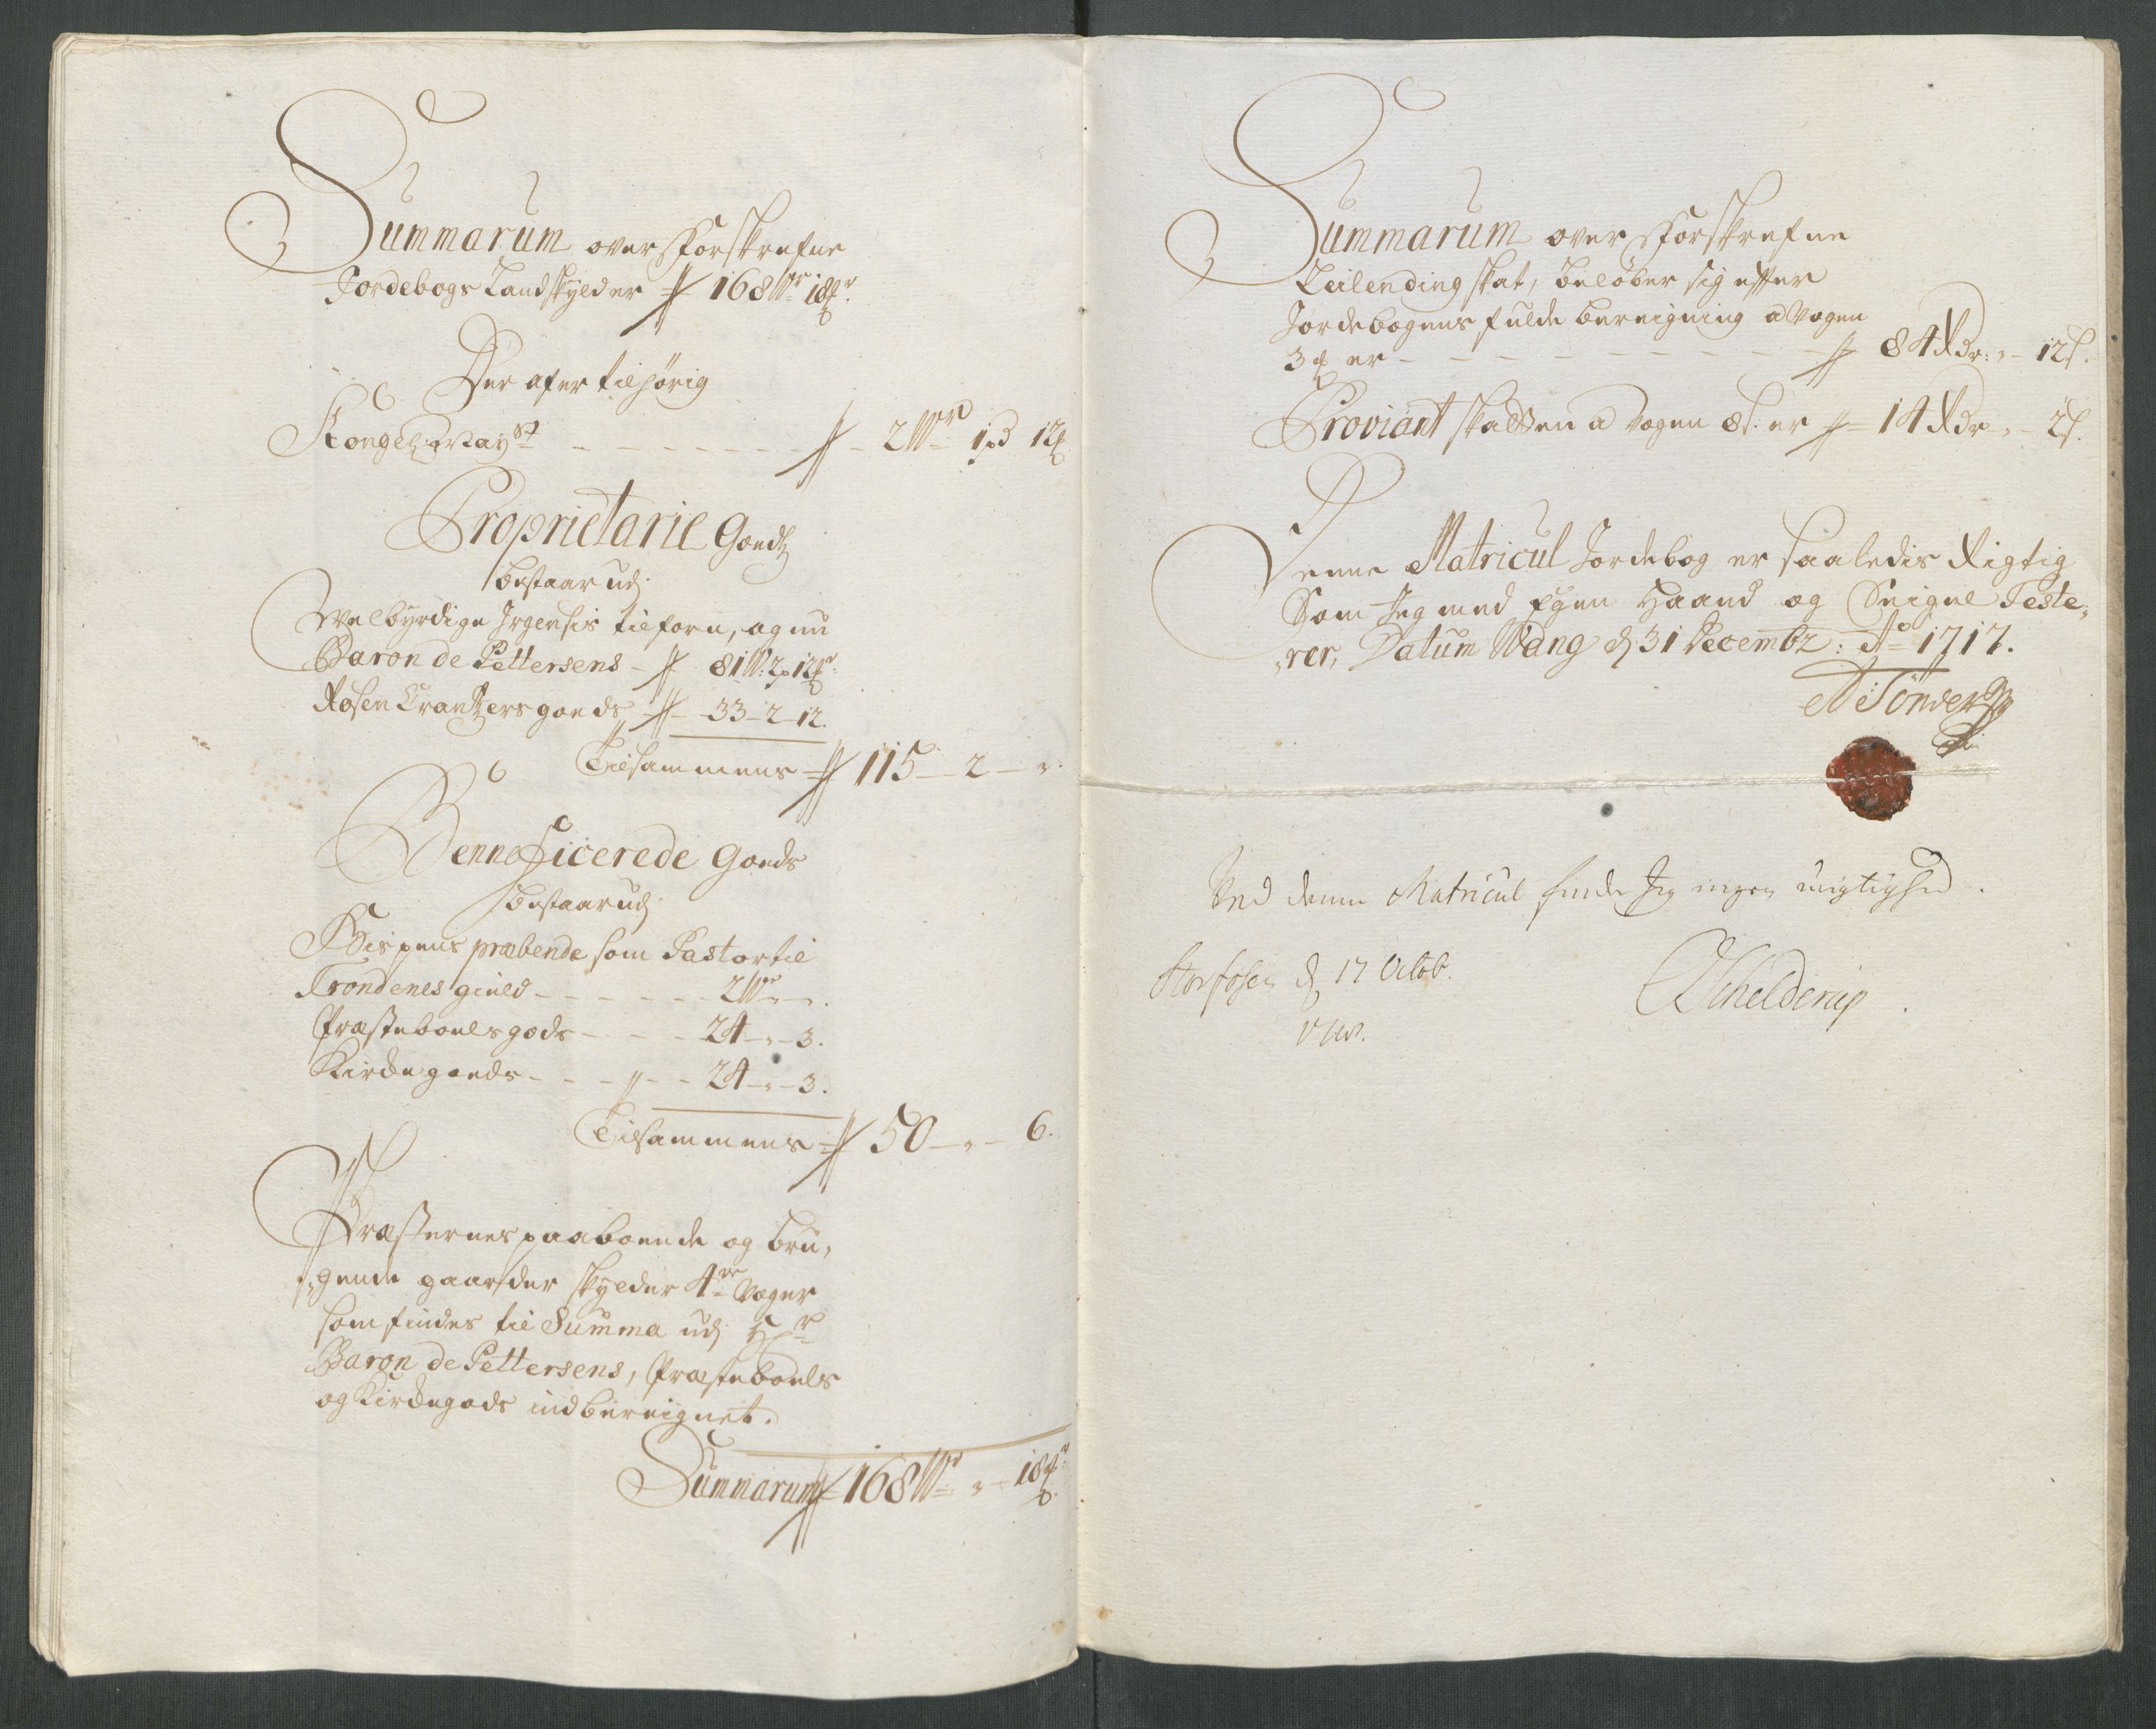 Summarum over Forskrefne
Jordebogs Landskylder # 168 W:r 18 ℔r.
Der af er tilhörig
Kongel: May:st - - - - - - - # - 2 W:r 1 pd 12 ℔
Proprietarie Goedtz
bestaar udj
Welbÿrdige Irgensis tilforn, og nu
Baron de Pettersens - # 81 W: 2 p 12 ℔r
Rosen Crantzers goeds # - 33 - 2 - 12.
Tilsammens # 115 - 2 - „.
Benneficerede Goeds
bestaar udj
Bispens præbende som Pastor til
Trondenes gield - - - - - - 2 W:r „ - „.
Præsteboels gods - - - - 24 - „ - 3.
Kirche goeds - - - „ - - 24 - „ - 3.
Tilsammens # 50 - „ - 6.
Præsternes paaboende og bru„
„gende gaarder skylder 4re Voger
som findes til Summa udj H:r
Baron de Pettersens, Præsteboels
og Kirchegods indbereignet.
Summarum # 168 W:r „ - 18 ℔r.
Summarum over Forskrefne
Leilending skat, belöber sig efter
Jordebogens fulde bereigning a Vogen
3 ℔ er - - - - - - - - - # 84 Rdr: „ - 12 s.
Proviant skatten a Vogen 8 s. er # 14 Rdr - „ - 2 s.
Denne Matricul Jordebog er saaledis Rigtig
Som Jeg med Egen Haand og Seigne Teste„
„rer, Datum Wang d 31 Decembr: Ao 1717.
A Tönder
Ved denne Matricul finde Jeg ingen urigtighed.
Storfosen d 17 Octob.
1718.
Schelderup.